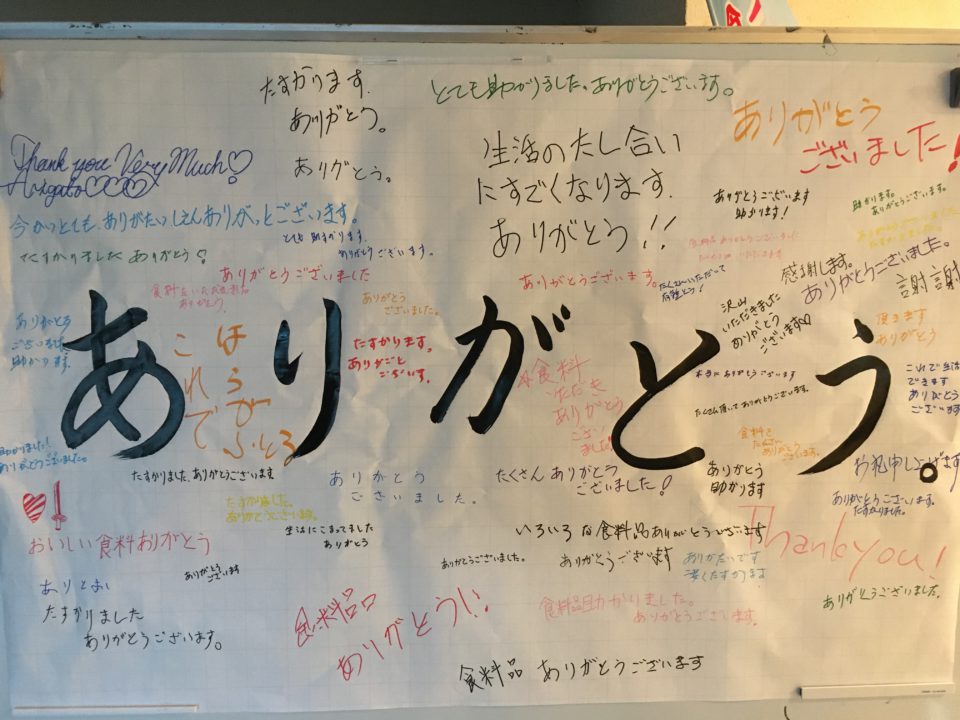 たすかります.
ありがとう。
ありがとう。
とても助かりました。ありがとうございます。
ありがとう
ございました!
Thank you Very Much♡
Arigato♡♡♡
生活のたし合い
にすごくなります.
ありがとう!!
ありがとうございます
助かります!
助かります。
ありがとうございます。
今かつとても、ありがたいしえんありがっとございます。
とても助かります.
ありがとうございます.
たすかりましたありがとう♡
ありがとうございました
ありがとうございます。
感謝します。
ありがとうございました。
謝謝
食料をいただき
ありがとう.
ありがとう
ございました。
沢山
いただきました
ありがとう
ございます♡
ありがとう
ございます
助かります.
ありがとう。
これで
ほうが
ふとる
たすかります。
ありがごと
ございます.
食料
いただき
ありがとう
ござい
ました!
頂きます
ありがとう
本当にありがとうございます
これで生活
できます
ありがとう
ございます
たくさん頂いてありがとうございます.
助かりました!
ありがとうございました。
食料を
たくさん
ありがとう
ございます.
たすかりました.ありがとうございます
ありがとう
ございました。
たくさんありがとう
ございました!
ありがとう
助かります
お礼申し上げます
ありがとうございます.
たすかりました.
たすかりました.
ありがとうございます。
生活にこまってました
ありがとう
いろいろな食料品ありがとうございます
Thank you!
おいしい食料ありがとう
ありがとう
ございます
ありがとうございました.
ありがとうございます
ありがたいです
凄くたすかります
たすかりました
ありがとうございます。
食料品
ありがとう!!
食料品助かりました。
ありがとうございます。
ありがとうございました.
食料品 ありがとうございます